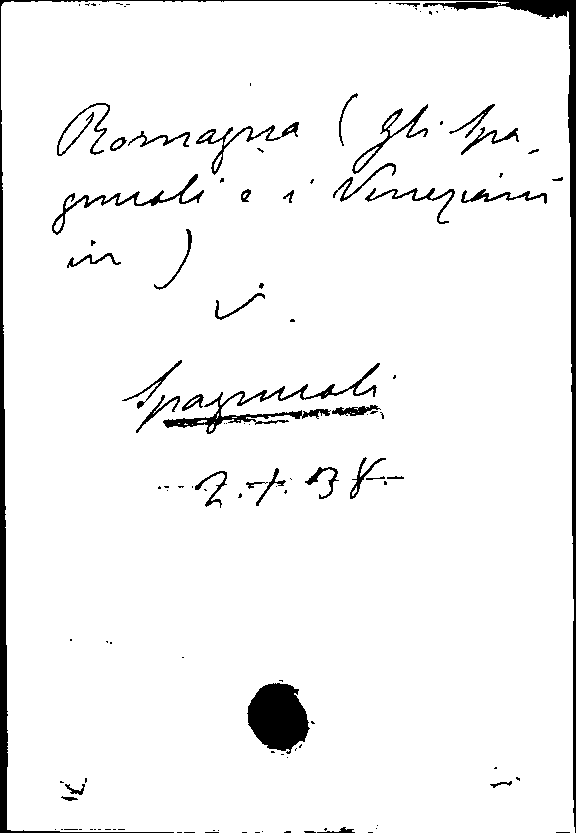 Romagna (Gli Spa-
gnuoli e i Veneziani
in)
V.
Spagnuoli
2.+.38.